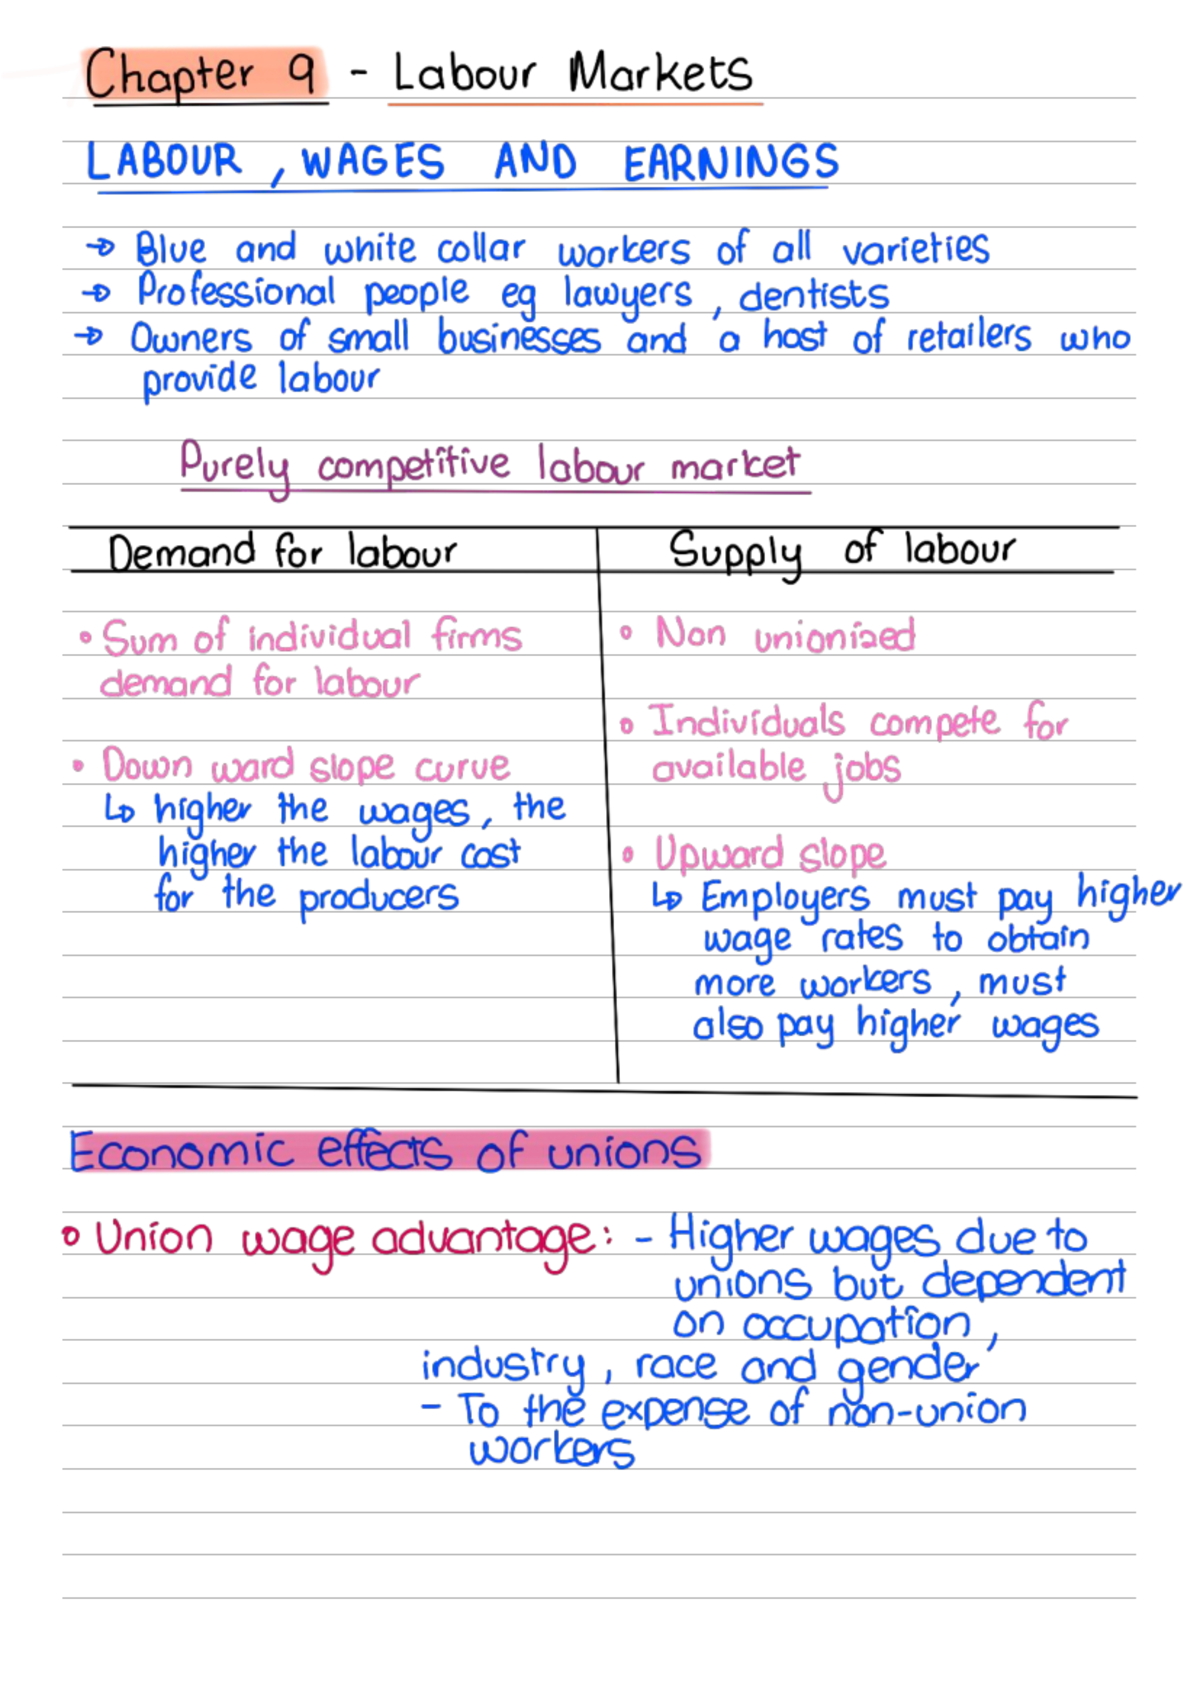 Chapter 9 - Labour Markets
LABOUR, WAGES AND EARNINGS
→ Blue and white collar workers of all varieties
→ Professional people eg lawyers, dentists
→ Owners of small businesses and a host of retailers who
provide labour
Purely competitive labour market
Demand for labour
• Sum of individual firms
demand for labour
• Down ward slope curve
↳ higher the wages, the
higher the labour cost
for the producers
Supply of labour
• Non unionized
• Individuals compete for
available jobs
• Upward slope
↳ Employers must pay higher
wage rates to obtain
more workers, must
also pay higher wages
Economic effects of unions
• Union wage advantage: - Higher wages due to
unions but dependent
on occupation,
industry, race and gender
- To the expense of non-union
workers